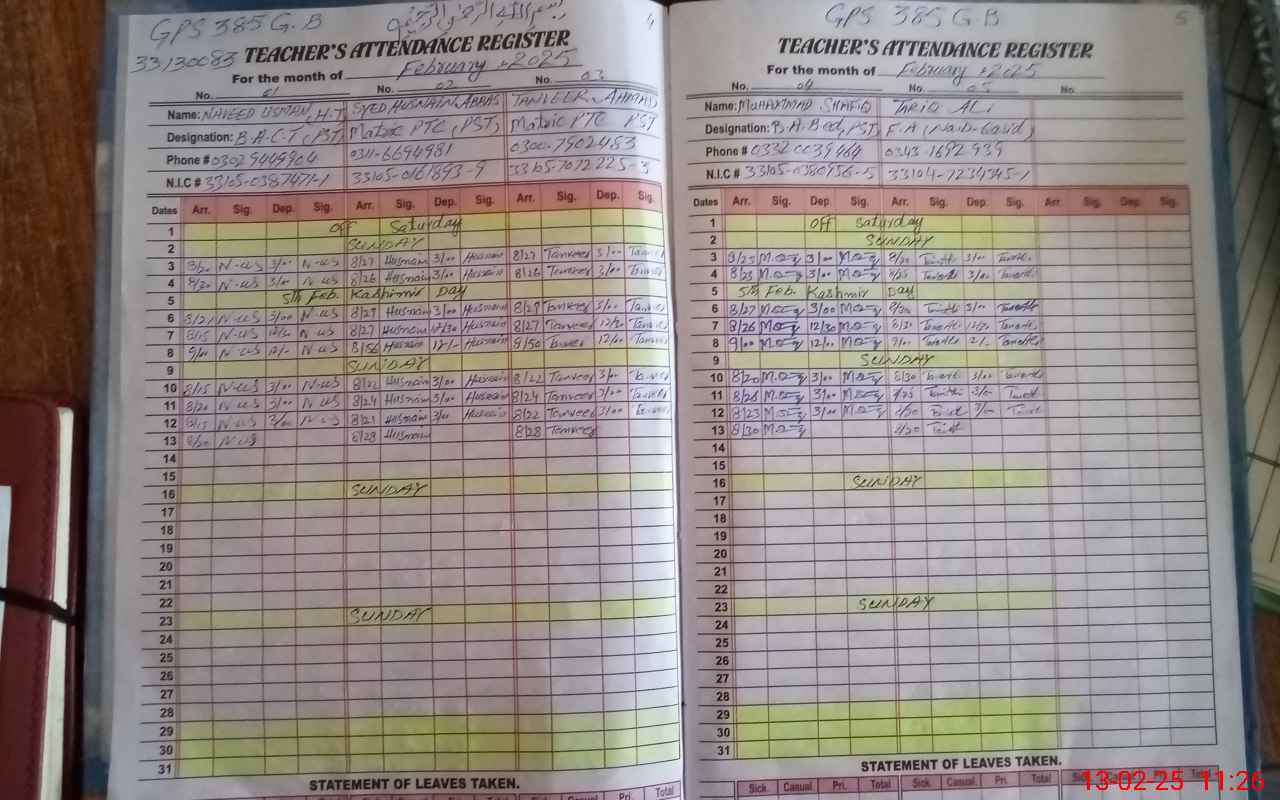 GPS 385 G.B
بسم اللہ الرحمن الرحیم
4
33130083 TEACHER'S ATTENDANCE REGISTER
For the month of February, 2025
No. 01 No. 02 No. 03
Name: NAVEED USMAN, H.T SYED HUSNAIN ABBAS TANVEER AHMAD
Designation: B.A C.T, PST, Matric PTC, PST, Matric PTC PST
Phone # 0302 9449904 0311-6694981 0300-7902483
N.I.C # 33105-0387471-1 33105-0161893-9 33105-7072225-3
Dates Arr. Sig. Dep. Sig. Arr. Sig. Dep. Sig. Arr. Sig. Dep. Sig.
1 Off Saturday
2 SUNDAY
3 N-US 3/00 N-US 8/27 Husnain 3/00 Husnain 8/27 Tanveer 3/00 Tanveer
4 8/20 N-US 3/00 N-US 8/26 Husnain 3/00 Husnain 8/26 Tanveer 3/00 Tanveer
5 5th Feb. Kashmir Day
6 8/21 N-US 3/00 N-US 8/29 Husnain 3/00 Husnain 8/29 Tanveer 3/00 Tanveer
7 8/15 N-US 12/30 N-US 8/27 Husnain 12/30 Husnain 8/27 Tanveer 12/30 Tanveer
8 9/00 N-US 12/- N-US 8/56 Husnain 12/- Husnain 8/50 Tanveer 12/00 Tanveer
9 SUNDAY
10 8/15 N-US 3/00 N-US 8/22 Husnain 3/00 Husnain 8/22 Tanveer 3/00 Tanveer
11 8/20 N-US 3/00 N-US 8/24 Husnain 3/00 Husnain 8/24 Tanveer 3/00 Tanveer
12 8/15 N-US 3/00 N-US 8/21 Husnain 3/00 Husnain 8/22 Tanveer 3/00 Tanveer
13 8/20 N-US 8/28 Husnain 8/28 Tanveer
14
15
16 SUNDAY
17
18
19
20
21
22
23 SUNDAY
24
25
26
27
28
29
30
31
STATEMENT OF LEAVES TAKEN.
Pri. Total
GPS 385 G.B
5
TEACHER'S ATTENDANCE REGISTER
For the month of February, 2025
No. 04 No. 05 No.
Name: MUHAMMAD SHAFIQ TARIQ ALI
Designation: B.A B.ed, PST, F.A (Naib-Qasid)
Phone # 0332 0039464 0343-1692939
N.I.C # 33105-0380956-5 33104-7234345-1
Dates Arr. Sig. Dep. Sig. Arr. Sig. Dep. Sig. Arr. Sig. Dep. Sig.
1 Off Saturday
2 SUNDAY
3 8/25 3/00 8/20 3/00
4 8/23 3/00 8/25 3/00
5 5th Feb. Kashmir Day
6 8/27 3/00 8/30 3/00
7 8/26 12/30 8/31 12/30
8 9/00 12/00 9/00 12/-
9 SUNDAY
10 8/20 3/00 8/30 3/00
11 8/26 3/00 8/25 3/00
12 8/23 3/00 3/00
13 8/30
14
15
16 SUNDAY
17
18
19
20
21
22
23 SUNDAY
24
25
26
27
28
29
30
31
STATEMENT OF LEAVES TAKEN.
Sick. Casual Pri. Total Sick. Casual Pri. Total Sick. Casual Pri. Total
13-02-25 11:26